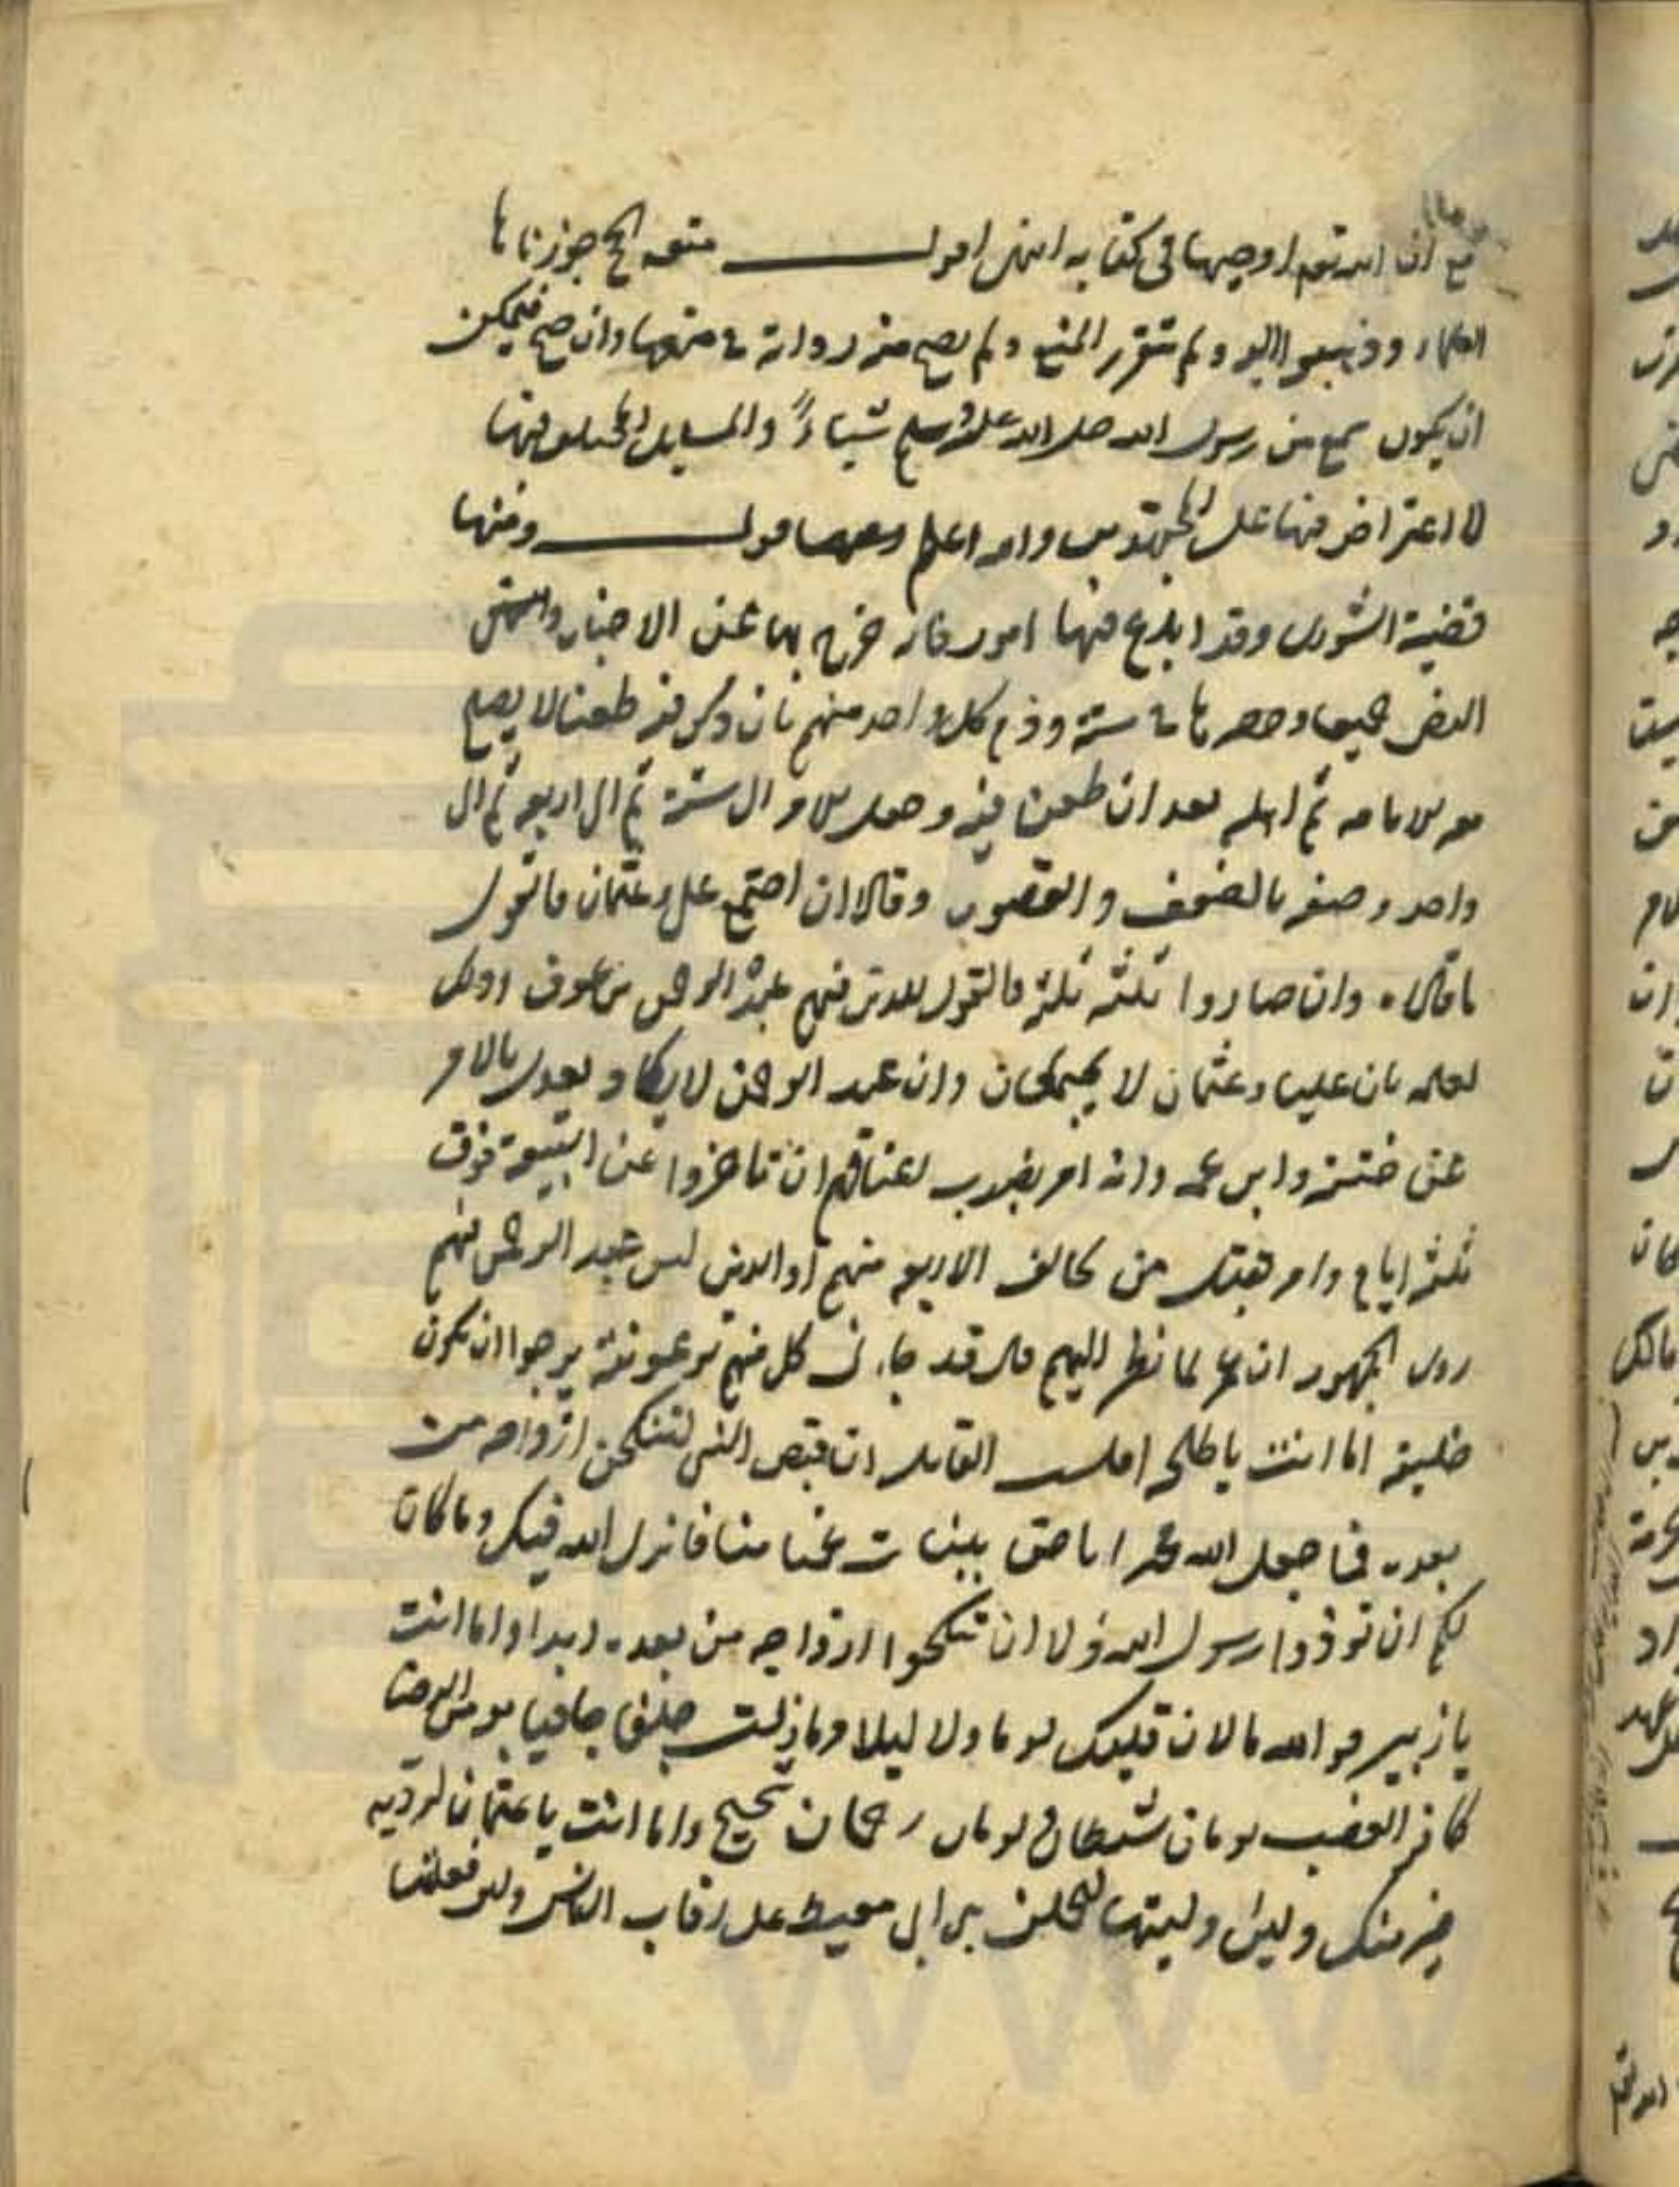 مع ان الله تعم اوجبها في كتابه انتهى اقول متعه الحج جوزناها
العلماء وذهبوا اليه ولم يتقرر المنع ولم يصح منه رواية في منعها وان صح فيمكن
ان يكون سمع من رسول الله صلى الله عليه وسلم شيئاً والمسايل المختلف فيها
لا اعتراض فيها على المجتهدين والله اعلم ومنها
قضية الشورى وقد ابدع فيها امور فانه خرج بها عن الاختيار والنص
النص جميعا وحصرها في ستة وذم كل واحد منهم بان ذكر فيه طعنا لا يصلح
معه للامامه ثم اهله بعد ان طعن فيه وجعل الامر الى ستة ثم الى اربعه ثم الى
واحد وصفه بالضعف والقصور وقال ان اجتمع علي وعثمان فالقول
ما قالاه وان صاروا ثلثه ثلثه فالقول للذين فيهم عبد الرحمن بن عوف وذلك
لعلمه بان عليا وعثمان لا يجتمعان وان عبد الرحمن لا يكاد يعدل بالامر
عن ختنه وابن عمه وانه امر بضرب اعناقهم ان تاخروا عن البيعة فوق
ثلثه ايام وامر بقتل من يخالف الاربعه منهم او الذين ليس عبد الرحمن فيهم
روى الجمهور ان عمر لما نظر اليهم قال قد جاءني كل منهم يرجوا ان يكون
خليفه اما انت يا طلحه افلست القايل ان قبض النبي لننكحن ازواجه من
بعده فما جعل الله محمدا باحق ببنات عمنا منا فانزل الله فيك وما كان
لكم ان توذوا رسول الله ولا ان تنكحوا ازواجه من بعده ابدا واما انت
يا زبير فوالله ما لان قلبك يوما ولا ليلا وما زلت جلفا جافيا مومن الرضا
كافر الغضب يوما شيطان ويوما رحمان شحيح واما انت يا عثمان لروثه
خير منك ولين وليتها لتحملن بني ابي معيط على رقاب الناس ولين فعلتها